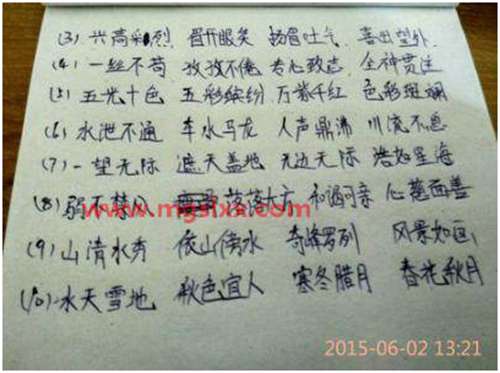 (3) 兴高彩烈 眉开眼笑 扬眉吐气 喜出望外
(4) 一丝不苟 孜孜不倦 专心致志 全神贯注
(5) 五光十色 五彩缤纷 万紫千红 色彩斑斓
(6) 水泄不通 车水马龙 人声鼎沸 川流不息
(7) 一望无际 遮天盖地 无边无际 浩如星海
(8) 弱不禁 落落大方 和蔼可亲 心慈面善
www.mgslxx.com
(9) 山清水秀 依山傍水 奇峰罗列 风景如画
(10) 水天雪地 秋色宜人 寒冬腊月 春花秋月
2015-06-02 13:21